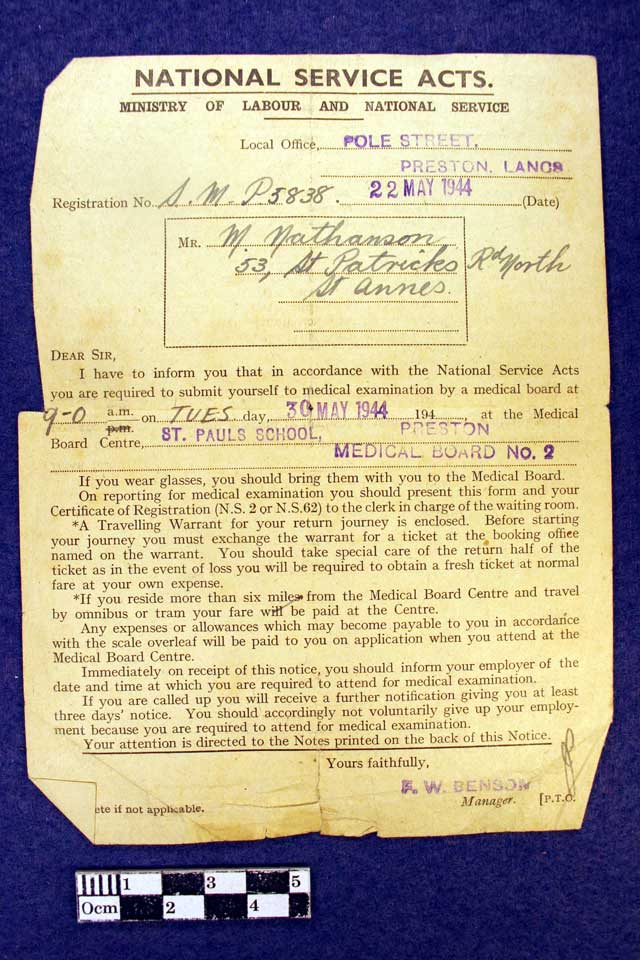 NATIONAL SERVICE ACTS.
MINISTRY OF LABOUR AND NATIONAL SERVICE
Local Office, POLE STREET,
PRESTON, LANCS
Registration No. S.M.P. 5838. 22 MAY 1944 (Date)
MR. M. Nathanson
53, St Patricks Rd North
St Annes.
DEAR SIR,
I have to inform you that in accordance with the National Service Acts
you are required to submit yourself to medical examination by a medical board at
9-0 a.m. p.m. on TUES day, 30 MAY 1944 194 , at the Medical
Board Centre, ST. PAULS SCHOOL, PRESTON
MEDICAL BOARD No. 2
If you wear glasses, you should bring them with you to the Medical Board.
On reporting for medical examination you should present this form and your
Certificate of Registration (N.S. 2 or N.S.62) to the clerk in charge of the waiting room.
*A Travelling Warrant for your return journey is enclosed. Before starting
your journey you must exchange the warrant for a ticket at the booking office
named on the warrant. You should take special care of the return half of the
ticket as in the event of loss you will be required to obtain a fresh ticket at normal
fare at your own expense.
*If you reside more than six miles from the Medical Board Centre and travel
by omnibus or tram your fare will be paid at the Centre.
Any expenses or allowances which may become payable to you in accordance
with the scale overleaf will be paid to you on application when you attend at the
Medical Board Centre.
Immediately on receipt of this notice, you should inform your employer of the
date and time at which you are required to attend for medical examination.
If you are called up you will receive a further notification giving you at least
three days' notice. You should accordingly not voluntarily give up your employ-
ment because you are required to attend for medical examination.
Your attention is directed to the Notes printed on the back of this Notice.
Yours faithfully,
F. W. BENSON
Manager. [P.T.O.
ete if not applicable.
0cm 1 2 3 4 5